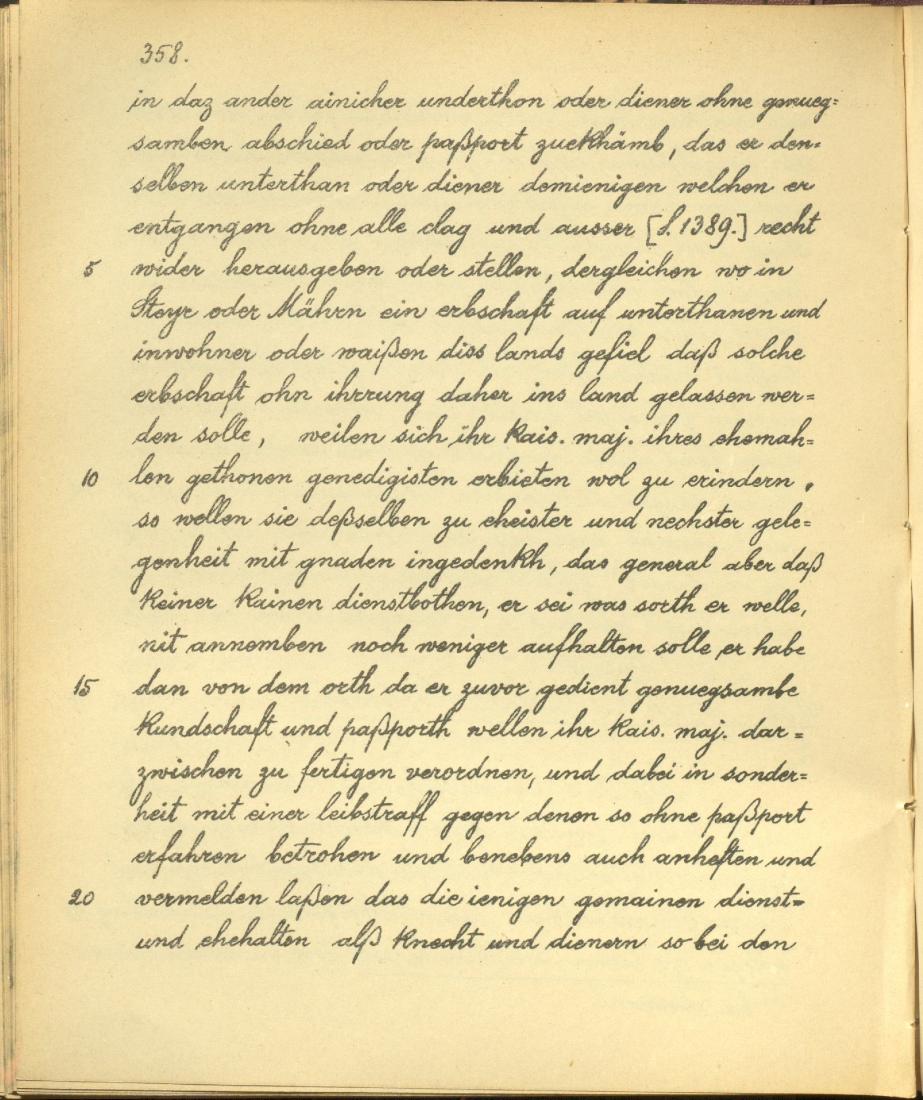 358.
in daz ander ainicher underthon oder diener ohne genueg=
samben abschied oder paßport zuekhämb, das er den=
selben unterthan oder diener demienigen welchen er
entgangen ohne alle clag und ausser [f. 1389.] recht
5 wider herausgeben oder stellen, dergleichen wo in
Steyr oder Mährn ein erbschaft auf unterthanen und
inwohner oder waißen diss lands gefiel daß solche
erbschaft ohn ihrrung daher ins land gelassen wer=
den solle, weilen sich ihr kais. maj. ihres ehemah=
10 len gethonen genedigisten erbieten wol zu erindern,
so wellen sie deßselben zu eheister und nechster gele=
genheit mit gnaden ingedenkh, das general aber daß
keiner kainen dienstbothen, er sei was sorth er welle,
nit annemben noch weniger aufhalten solle er habe
15 dan von dem orth da er zuvor gedient genuegsambe
kundschaft und paßporth wellen ihr kais. maj. dar=
zwischen zu fertigen verordnen, und dabei in sonder=
heit mit einer leibstraff gegen denen so ohne paßport
erfahren betrohen und benebens auch anheften und
20 vermelden laßen das die ienigen gemainen dienst=
und ehehalten alß knecht und dienern so bei den